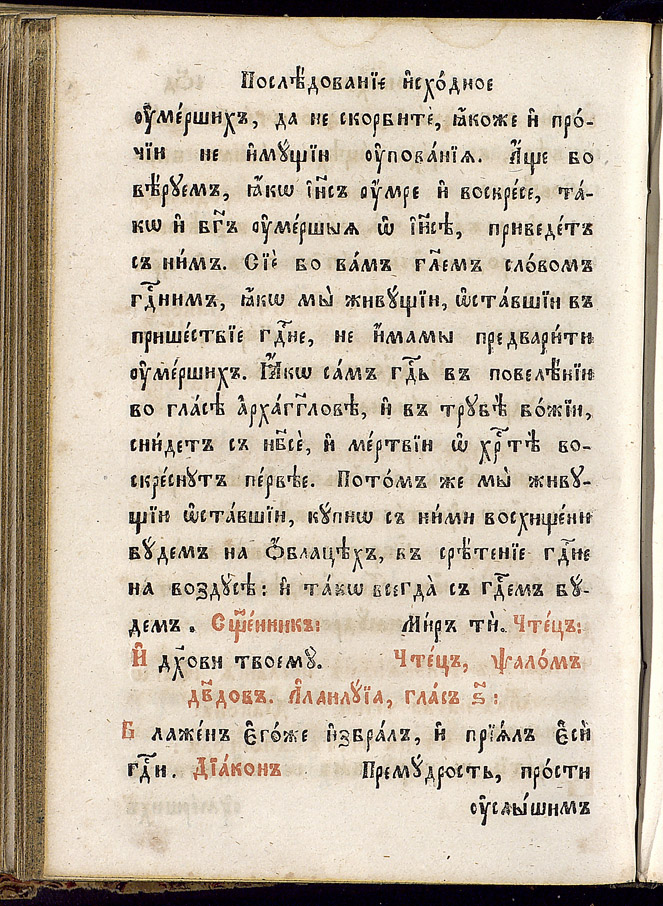 Послѣ́дованїе и҆схо́дное
ᲂу҆ме́ршихъ, да не скорбитѐ, ꙗ҆́коже и҆ про́-
чїи не и҆мꙋщїи ᲂу҆пова́нїѧ. А҆́ще бо
вѣ́рꙋемъ, ꙗ҆́кѡ і҆и҃съ ᲂу҆мре и҆ воскре́се, та́-
кѡ и҆ бг҃ъ ᲂу҆ме́ршыѧ ѡ҆ і҆и҃сѣ, приведе́тъ
съ ни́мъ. Сїѐ бо ва́мъ гл҃емъ сло́вомъ
гдⷭ҇нимъ, ꙗ҆́кѡ мы̀ живꙋщїи, ѡ҆ста́вшїи въ
прише́ствїе гдⷭ҇не, не и҆́мамы предвари́ти
ᲂу҆ме́ршихъ. Ꙗ҆́кѡ са́мъ гдⷭ҇ь въ повелѣ́нїи
во гла́сѣ а҆рха́гг҃ловѣ, и҆ въ трꙋбѣ̀ бо́жїи,
сни́детъ съ нб҃сѐ, и҆ ме́ртвїи ѡ҆ хрⷭ҇тѣ̀ во-
скре́снꙋтъ пе́рвѣе. Пото́мъ же мы̀ живꙋ́-
щїи ѡ҆ста́вшїи, кꙋпнѡ съ ни́ми восхище́ни
бꙋ́демъ на ѻ҆́блацѣхъ, въ срѣ́тенїе гдⷭ҇не
на воздꙋ́сѣ: и҆ та́кѡ всегда̀ съ гдⷭ҇емъ бꙋ́-
демъ. Сщ҃е́нникъ: Ми́ръ тѝ. Чте́цъ:
И҆ дх҃ови твоемꙋ̀. Чте́цъ, ѱало́мъ
дв҃довъ. А҆ллилꙋ́їа, гла́съ ѕ҃:
Блаже́нъ є҆го́же и҆збра́лъ, и҆ прїѧ́лъ є҆сѝ
гдⷭ҇и. Дїа́конъ Премꙋ́дрость, про́сти
ᲂу҆слы́шимъ